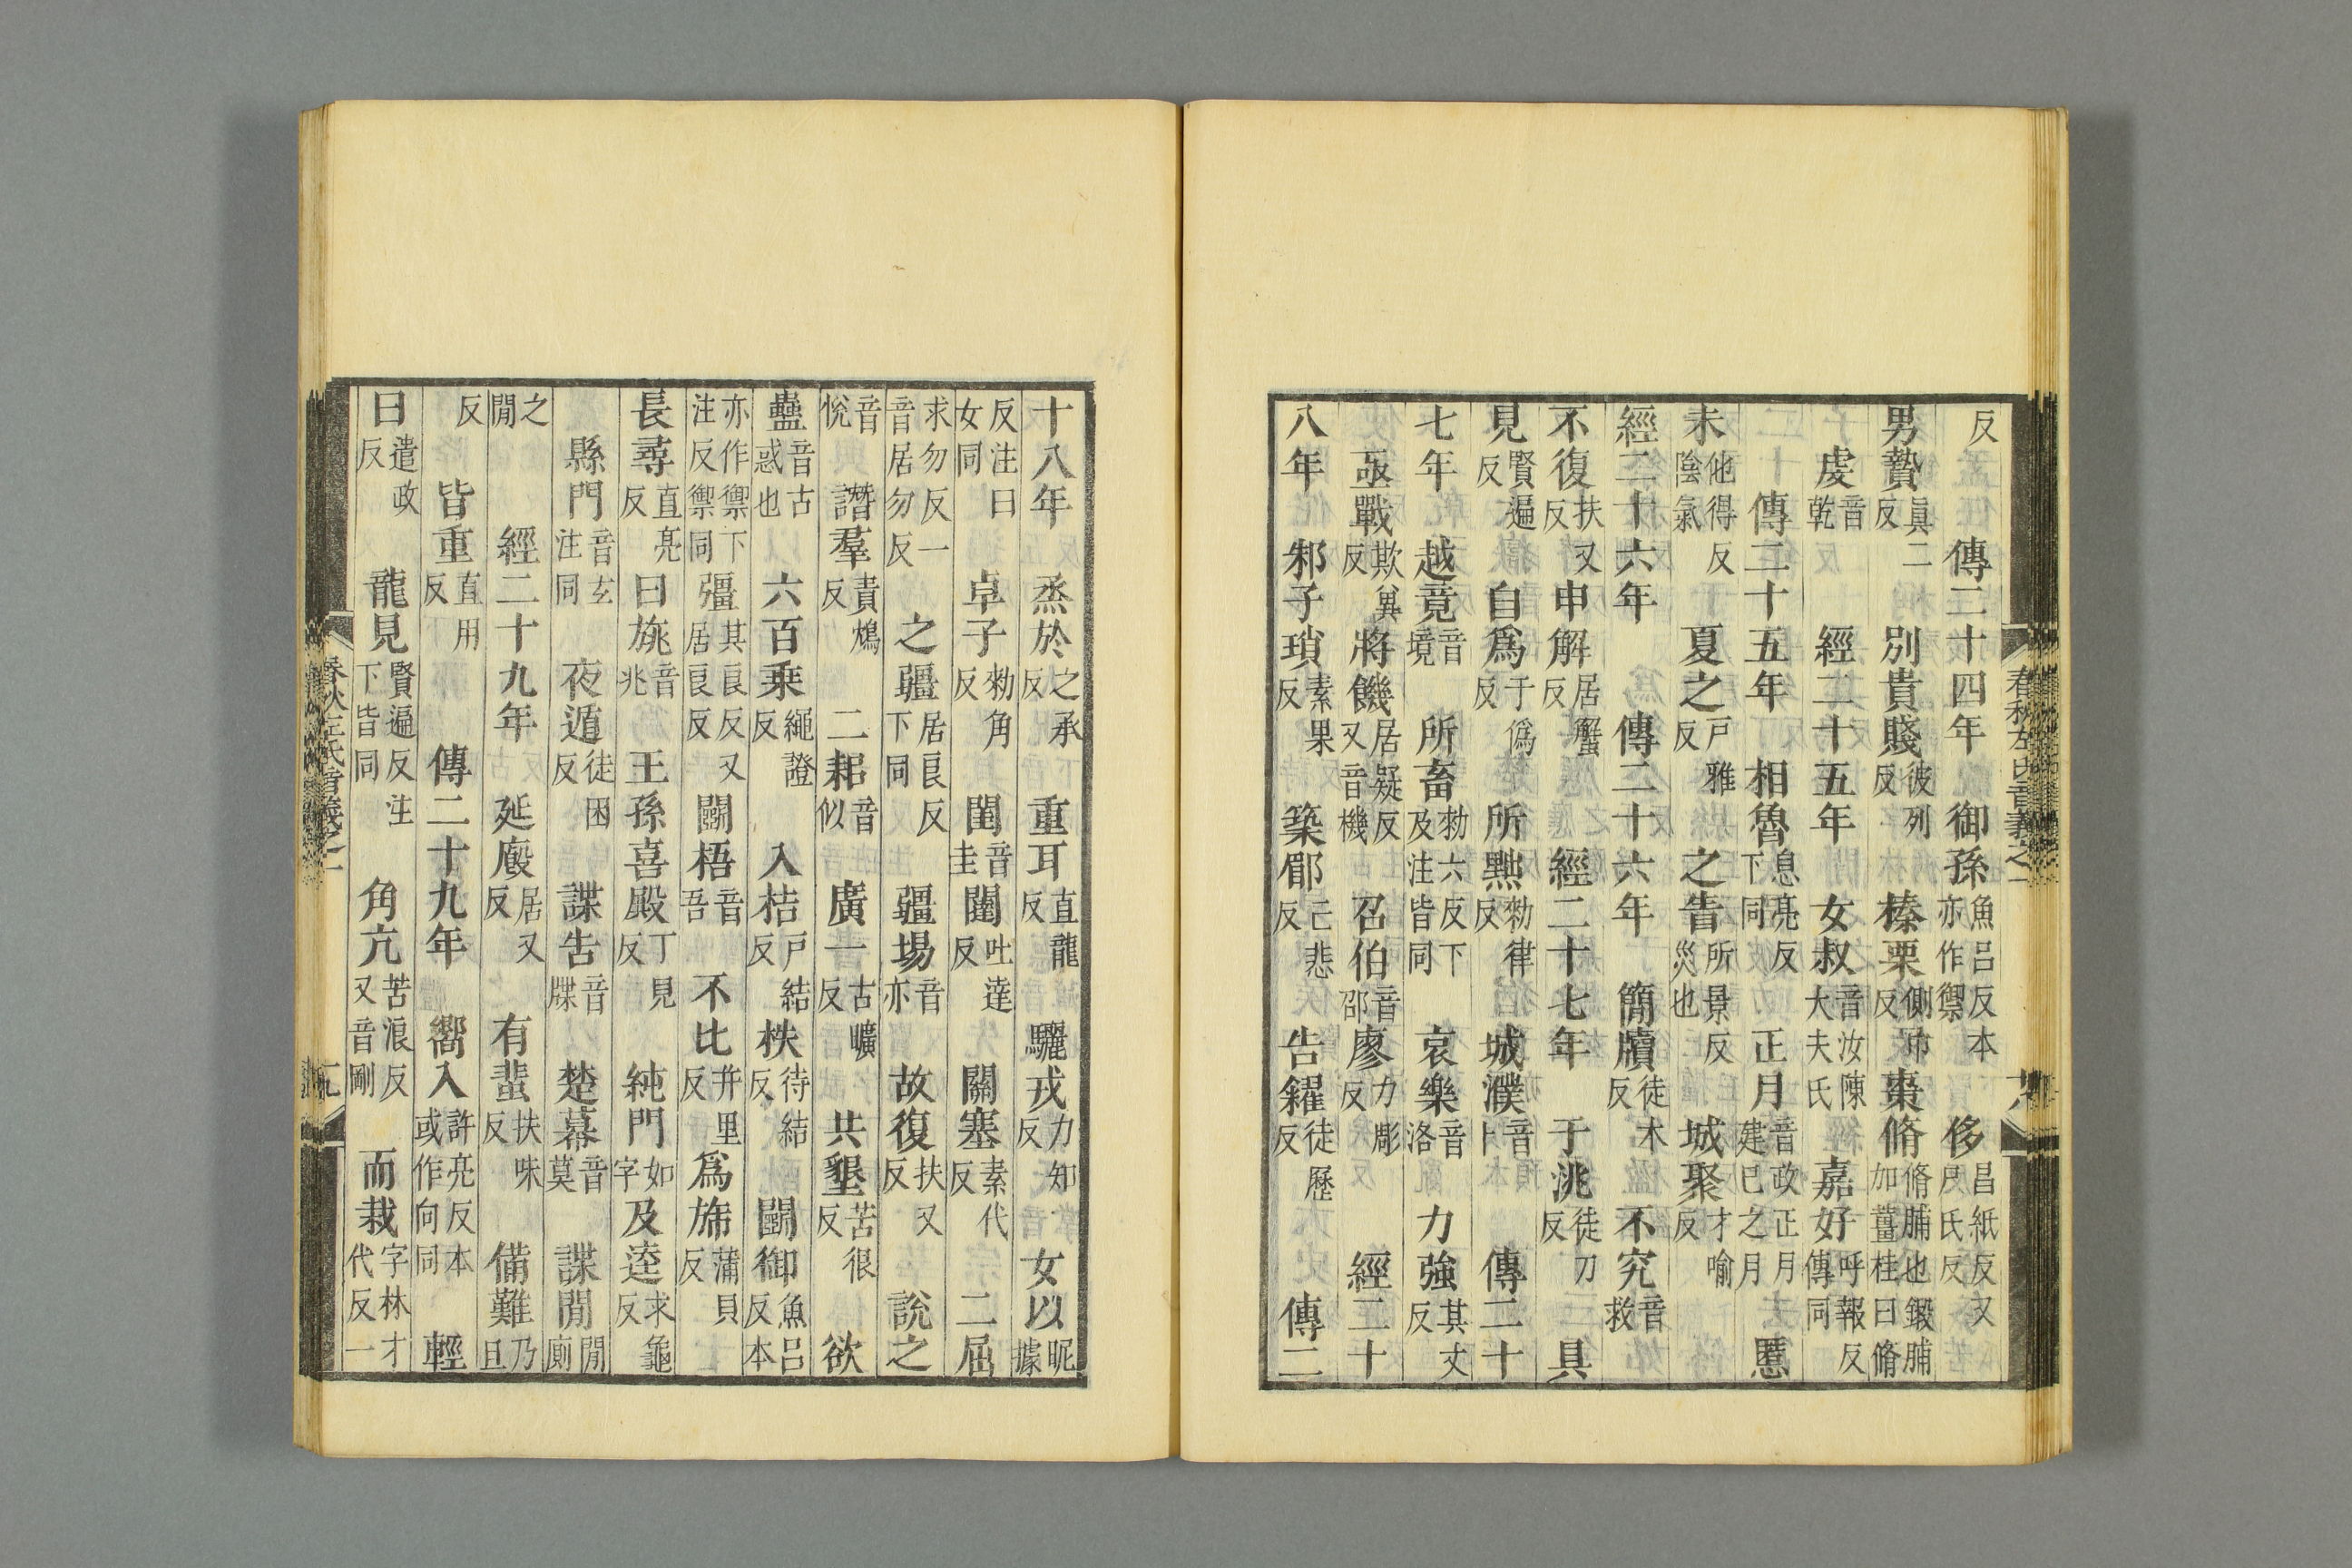 反　傳二十四年　御孫魚呂反本亦作禦　侈昌紙反又戶氏反
男贄眞二反　別貴賤彼列反　榛栗側巾反　棗脩脩脯也鍛脯加薑桂曰脩
虔音乾　經二十五年　女叔音汝陳大夫氏　嘉好呼報反傳同
傳二十五年　相魯息亮反下同　正月音政正月建巳之月　慝
未他得反陰氣　夏之戶雅反　之眚所景反災也　城聚才喻反
經二十六年　傳二十六年　簡牘徒木反　不究音救
不復扶又反　申解居蟹反　經二十七年　于洮徒刀反　具
見賢遍反　自爲于僞反　所黜勑律反　城濮音卜　傳二十
七年　越竟音境　所畜勑六反下及注皆同　哀樂音洛　力強其丈反
亟戰欺冀反　將饑居疑反又音機　召伯音邵　廖力彫反　經二十
八年　邾子瑣素果反　築郿亡悲反　告糴徒歷反　傳二
春秋左氏音義之一　六
十八年　烝於之承反　重耳直龍反　驪戎力知反　女以昵據
反注曰女同　卓子勑角反　閨音圭　闥吐達反　關塞素代反　二屈
求勿反一音居勿反　之疆居良反下同　疆埸音亦　故復扶又反　說之
音悅　譖羣責鴆反　二耜音似　廣一古曠反　共墾苦很反　欲
蠱音古惑也　六百乘繩證反　入桔戶結反　柣待結反　鬭御魚呂反本
亦作禦下注反禦同　彊其良反又居良反　鬭梧音吾　不比幷里反　爲旆蒲貝反
長尋直亮反　曰旐音兆　王孫喜殿丁見反　純門如字　及逵求龜反
縣門音玄注同　夜遁徒困反　諜告音牒　楚幕音莫　諜閒閒廁
之閒　經二十九年　延廄居又反　有蜚扶味反　備難乃旦
反　皆重直用反　傳二十九年　嚮入許亮反本或作向同　輕
曰遣政反　龍見賢遍反注下皆同　角亢苦浪反又音剛　而栽字林才代反一
春秋左氏音義之一　九